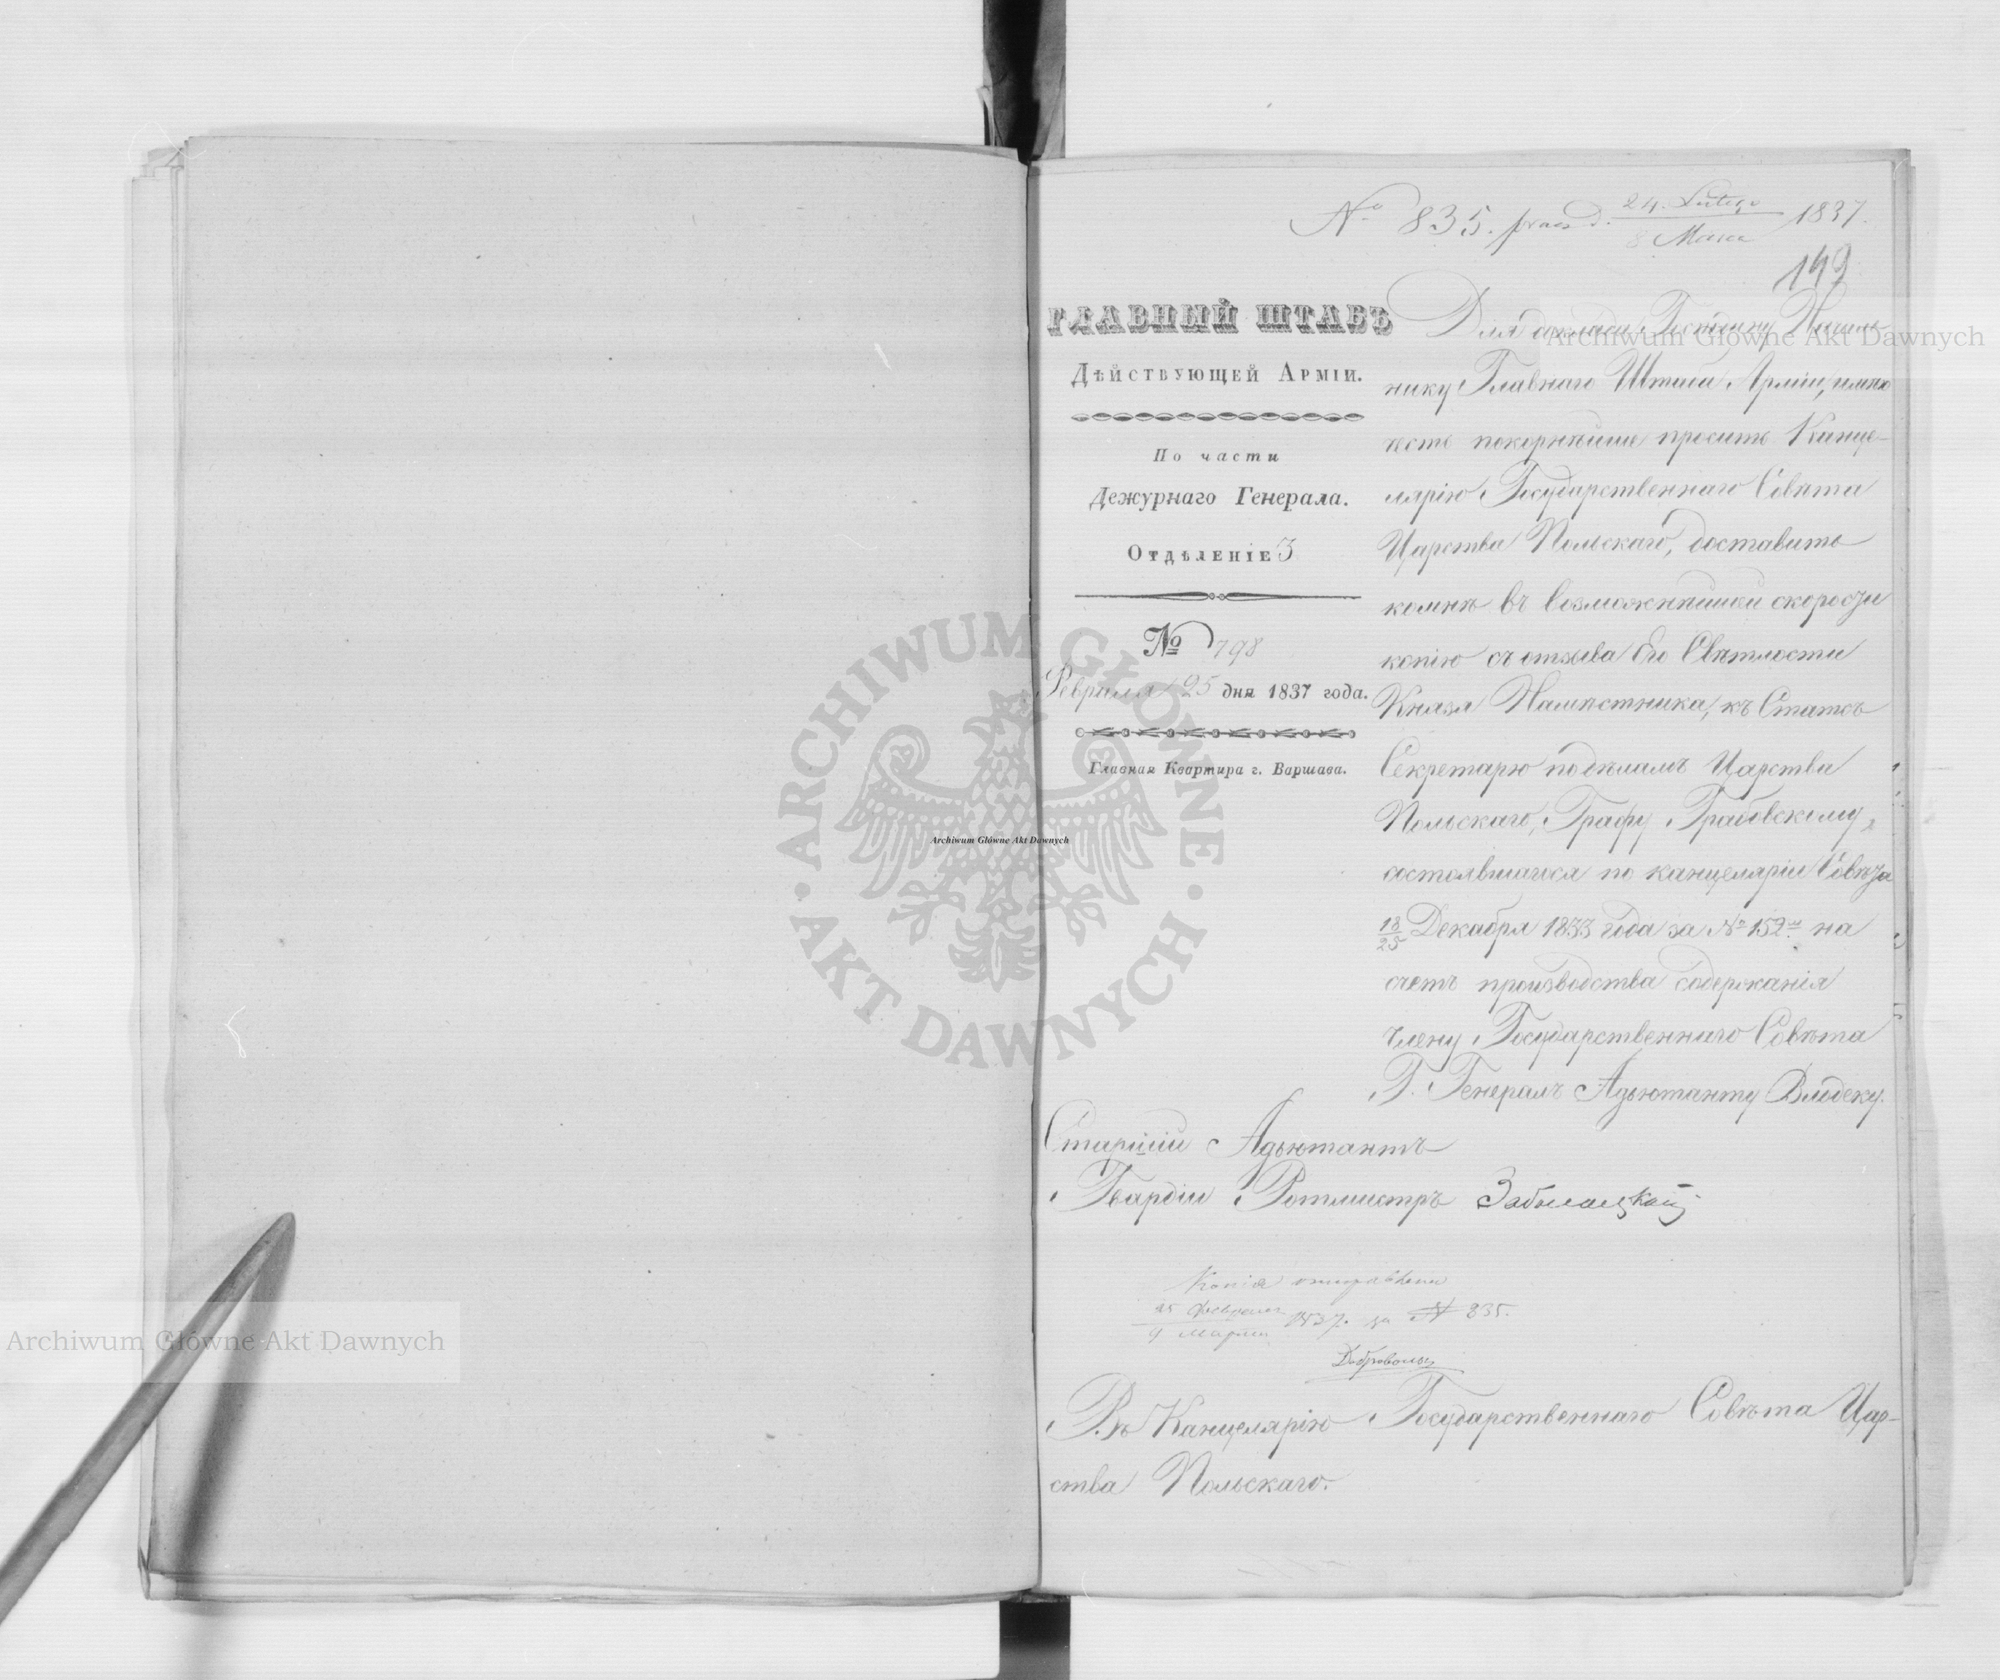 № 835. praes d. 24. Lutego / 8 Marca 1837.
149
ГЛАВНЫЙ ШТАБЪ
ДѢЙСТВУЮЩЕЙ АРМІИ.
По части
Дежурнаго Генерала.
ОТДѢЛЕНІЕ 3
№ 798
Февраля 25 дня 1837 года.
Главная Квартира г. Варшава.
Для доклада Господину Началь-
нику Главнаго Штаба Арміи, имѣю
честь покорнѣйше просить Канце-
лярію Государственнаго Совѣта
Царства Польскаго, доставить
ко мнѣ въ возможнѣйшей скорости
копію съ отзыва Его Свѣтлости
Князя Намѣстника, къ Статсъ
Секретарю по дѣламъ Царства
Польскаго, Графу Грабовскому,
состоявшагося по канцеляріи Совѣта
13/25 Декабря 1833 года за № 152 на
счетъ производства содержанія
члену Государственнаго Совѣта
Г. Генералъ Адъютанту Владеку.
Старшій Адъютантъ
Гвардіи Ротмистръ
Копія отправлена
25 Февраля / 9 Марта 1837. за № 835.
Въ Канцелярію Государственнаго Совѣта Цар-
ства Польскаго.
Archiwum Główne Akt Dawnych
Archiwum Główne Akt Dawnych
Archiwum Główne Akt Dawnych
ARCHIWUM GŁÓWNE AKT DAWNYCH